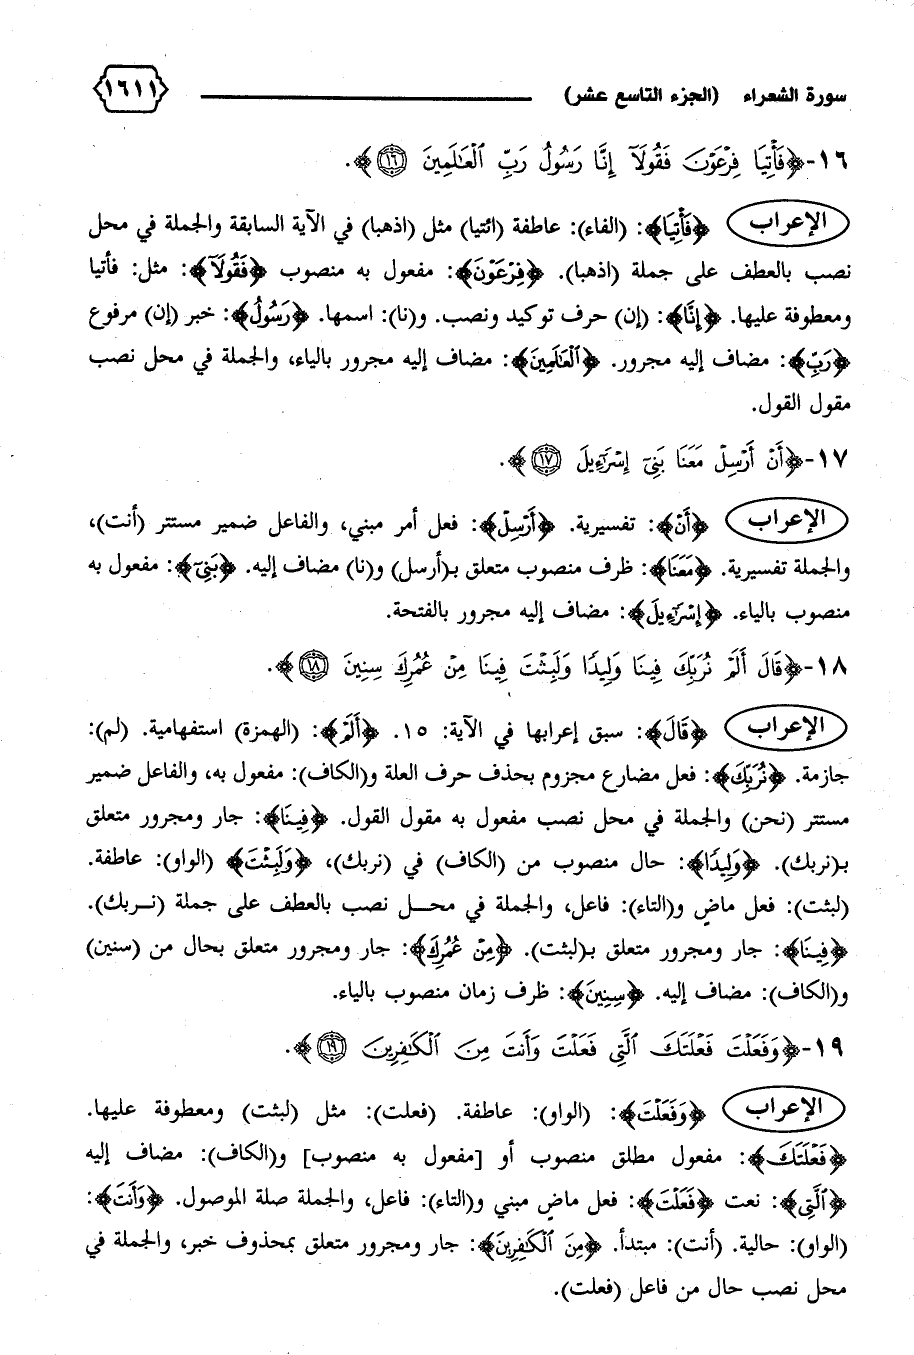 سورة الشعراء (الجزء التاسع عشر) ١٦١١
١٦-﴿فَأْتِيَا فِرْعَوْنَ فَقُولَآ إِنَّا رَسُولُ رَبِّ ٱلْعَٰلَمِينَ ١٦﴾.
الإعراب ﴿فَأْتِيَا﴾: (الفاء): عاطفة (ائتيا) مثل (اذهبا) في الآية السابقة والجملة في محل
نصب بالعطف على جملة (اذهبا). ﴿فِرْعَوْنَ﴾: مفعول به منصوب ﴿فَقُولَآ﴾: مثل: فأتيا
ومعطوفة عليها. ﴿إِنَّا﴾: (إن) حرف توكيد ونصب. و(نا): اسمها. ﴿رَسُولُ﴾: خبر (إن) مرفوع
﴿رَبِّ﴾: مضاف إليه مجرور. ﴿ٱلْعَٰلَمِينَ﴾: مضاف إليه مجرور بالياء، والجملة في محل نصب
مقول القول.
١٧-﴿أَنْ أَرْسِلْ مَعَنَا بَنِىٓ إِسْرَٰٓءِيلَ ١٧﴾.
الإعراب ﴿أَنْ﴾: تفسيرية. ﴿أَرْسِلْ﴾: فعل أمر مبني، والفاعل ضمير مستتر (أنت)،
والجملة تفسيرية. ﴿مَعَنَا﴾: ظرف منصوب متعلق بـ(أرسل) و(نا) مضاف إليه. ﴿بَنِىٓ﴾: مفعول به
منصوب بالياء. ﴿إِسْرَٰٓءِيلَ﴾: مضاف إليه مجرور بالفتحة.
١٨-﴿قَالَ أَلَمْ نُرَبِّكَ فِينَا وَلِيدًا وَلَبِثْتَ فِينَا مِنْ عُمُرِكَ سِنِينَ ١٨﴾.
الإعراب ﴿قَالَ﴾: سبق إعرابها في الآية: ١٥. ﴿أَلَمْ﴾: (الهمزة) استفهامية. (لم):
جازمة. ﴿نُرَبِّكَ﴾: فعل مضارع مجزوم بحذف حرف العلة و(الكاف): مفعول به، والفاعل ضمير
مستتر (نحن) والجملة في محل نصب مفعول به مقول القول. ﴿فِينَا﴾: جار ومجرور متعلق
بـ(نربك). ﴿وَلِيدًا﴾: حال منصوب من (الكاف) في (نربك)، ﴿وَلَبِثْتَ﴾ (الواو): عاطفة.
(لبثت): فعل ماضٍ و(التاء): فاعل، والجملة في محـــل نصب بالعطف على جملة (نــربك).
﴿فِينَا﴾: جار ومجرور متعلق بـ(لبثت). ﴿مِنْ عُمُرِكَ﴾: جار ومجرور متعلق بحال من (سنين)
و(الكاف): مضاف إليه. ﴿سِنِينَ﴾: ظرف زمان منصوب بالياء.
١٩-﴿وَفَعَلْتَ فَعْلَتَكَ ٱلَّتِى فَعَلْتَ وَأَنتَ مِنَ ٱلْكَٰفِرِينَ ١٩﴾.
الإعراب ﴿وَفَعَلْتَ﴾: (الواو): عاطفة. (فعلت): مثل (لبثت) ومعطوفة عليها.
﴿فَعْلَتَكَ﴾: مفعول مطلق منصوب أو [مفعول به منصوب] و(الكاف): مضاف إليه
﴿ٱلَّتِى﴾: نعت ﴿فَعَلْتَ﴾: فعل ماضٍ مبني و(التاء): فاعل، والجملة صلة الموصول. ﴿وَأَنتَ﴾:
(الواو): حالية. (أنت): مبتدأ. ﴿مِنَ ٱلْكَٰفِرِينَ﴾: جار ومجرور متعلق بمحذوف خبر، والجملة في
محل نصب حال من فاعل (فعلت).